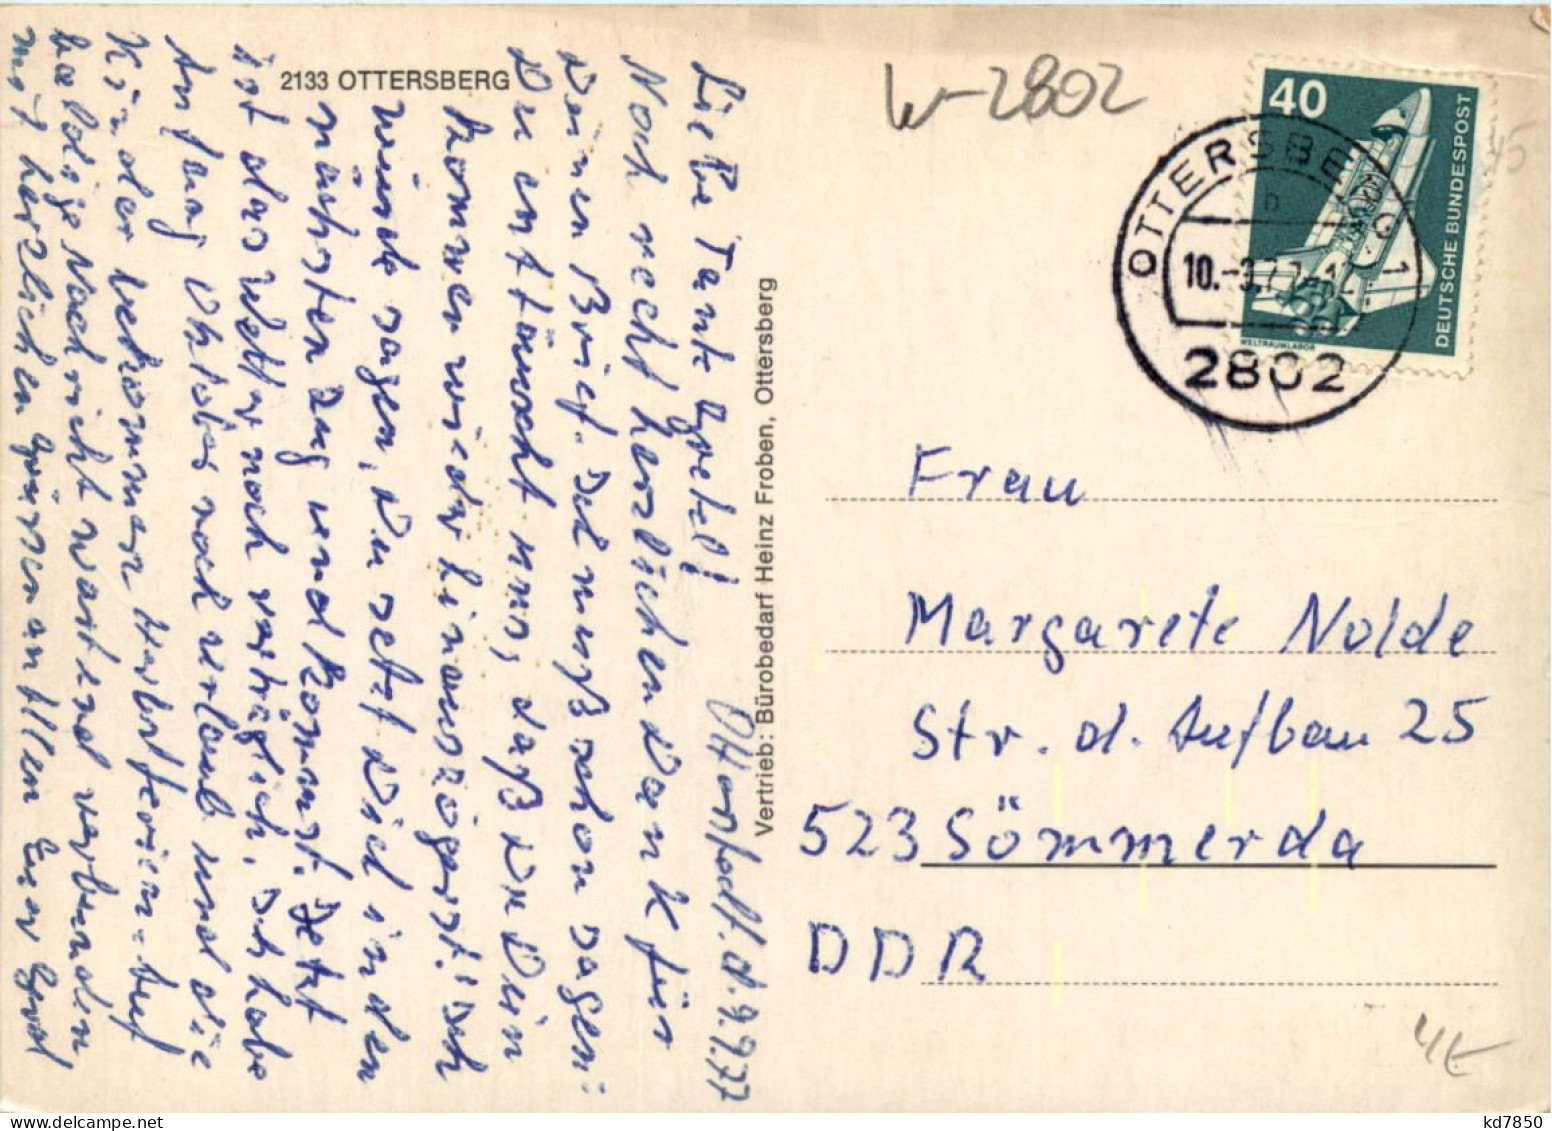 2133 OTTERSBERG
W-2802
40
DEUTSCHE BUNDESPOST
WELTRAUMLABOR
OTTERSBERG 1
b
2802
Otterstedt, d. 9.9.77
Liebe Tante Gretel!
Noch recht herzlichen Dank für
Deinen Brief. Ich muß schon sagen:
Du enttäuscht mir, daß Du Dein
Kommen wieder hinauszögerst! Ich
würde sagen, Du setzt Dich in den
nächsten Zug und kommst. Jetzt
ist das Wetter noch verträglich. Ich habe
Anfang Oktober noch Urlaub und die
Kinder bekommen Herbstferien. Auf
baldige Nachricht wartend verbunden
mit herzlichen Grüssen an Allen Euer Gerd
Vertrieb: Bürobedarf Heinz Froben, Ottersberg
Frau
Margarete Nolde
Str. d. Aufbau 25
523 Sömmerda
DDR
kd7850